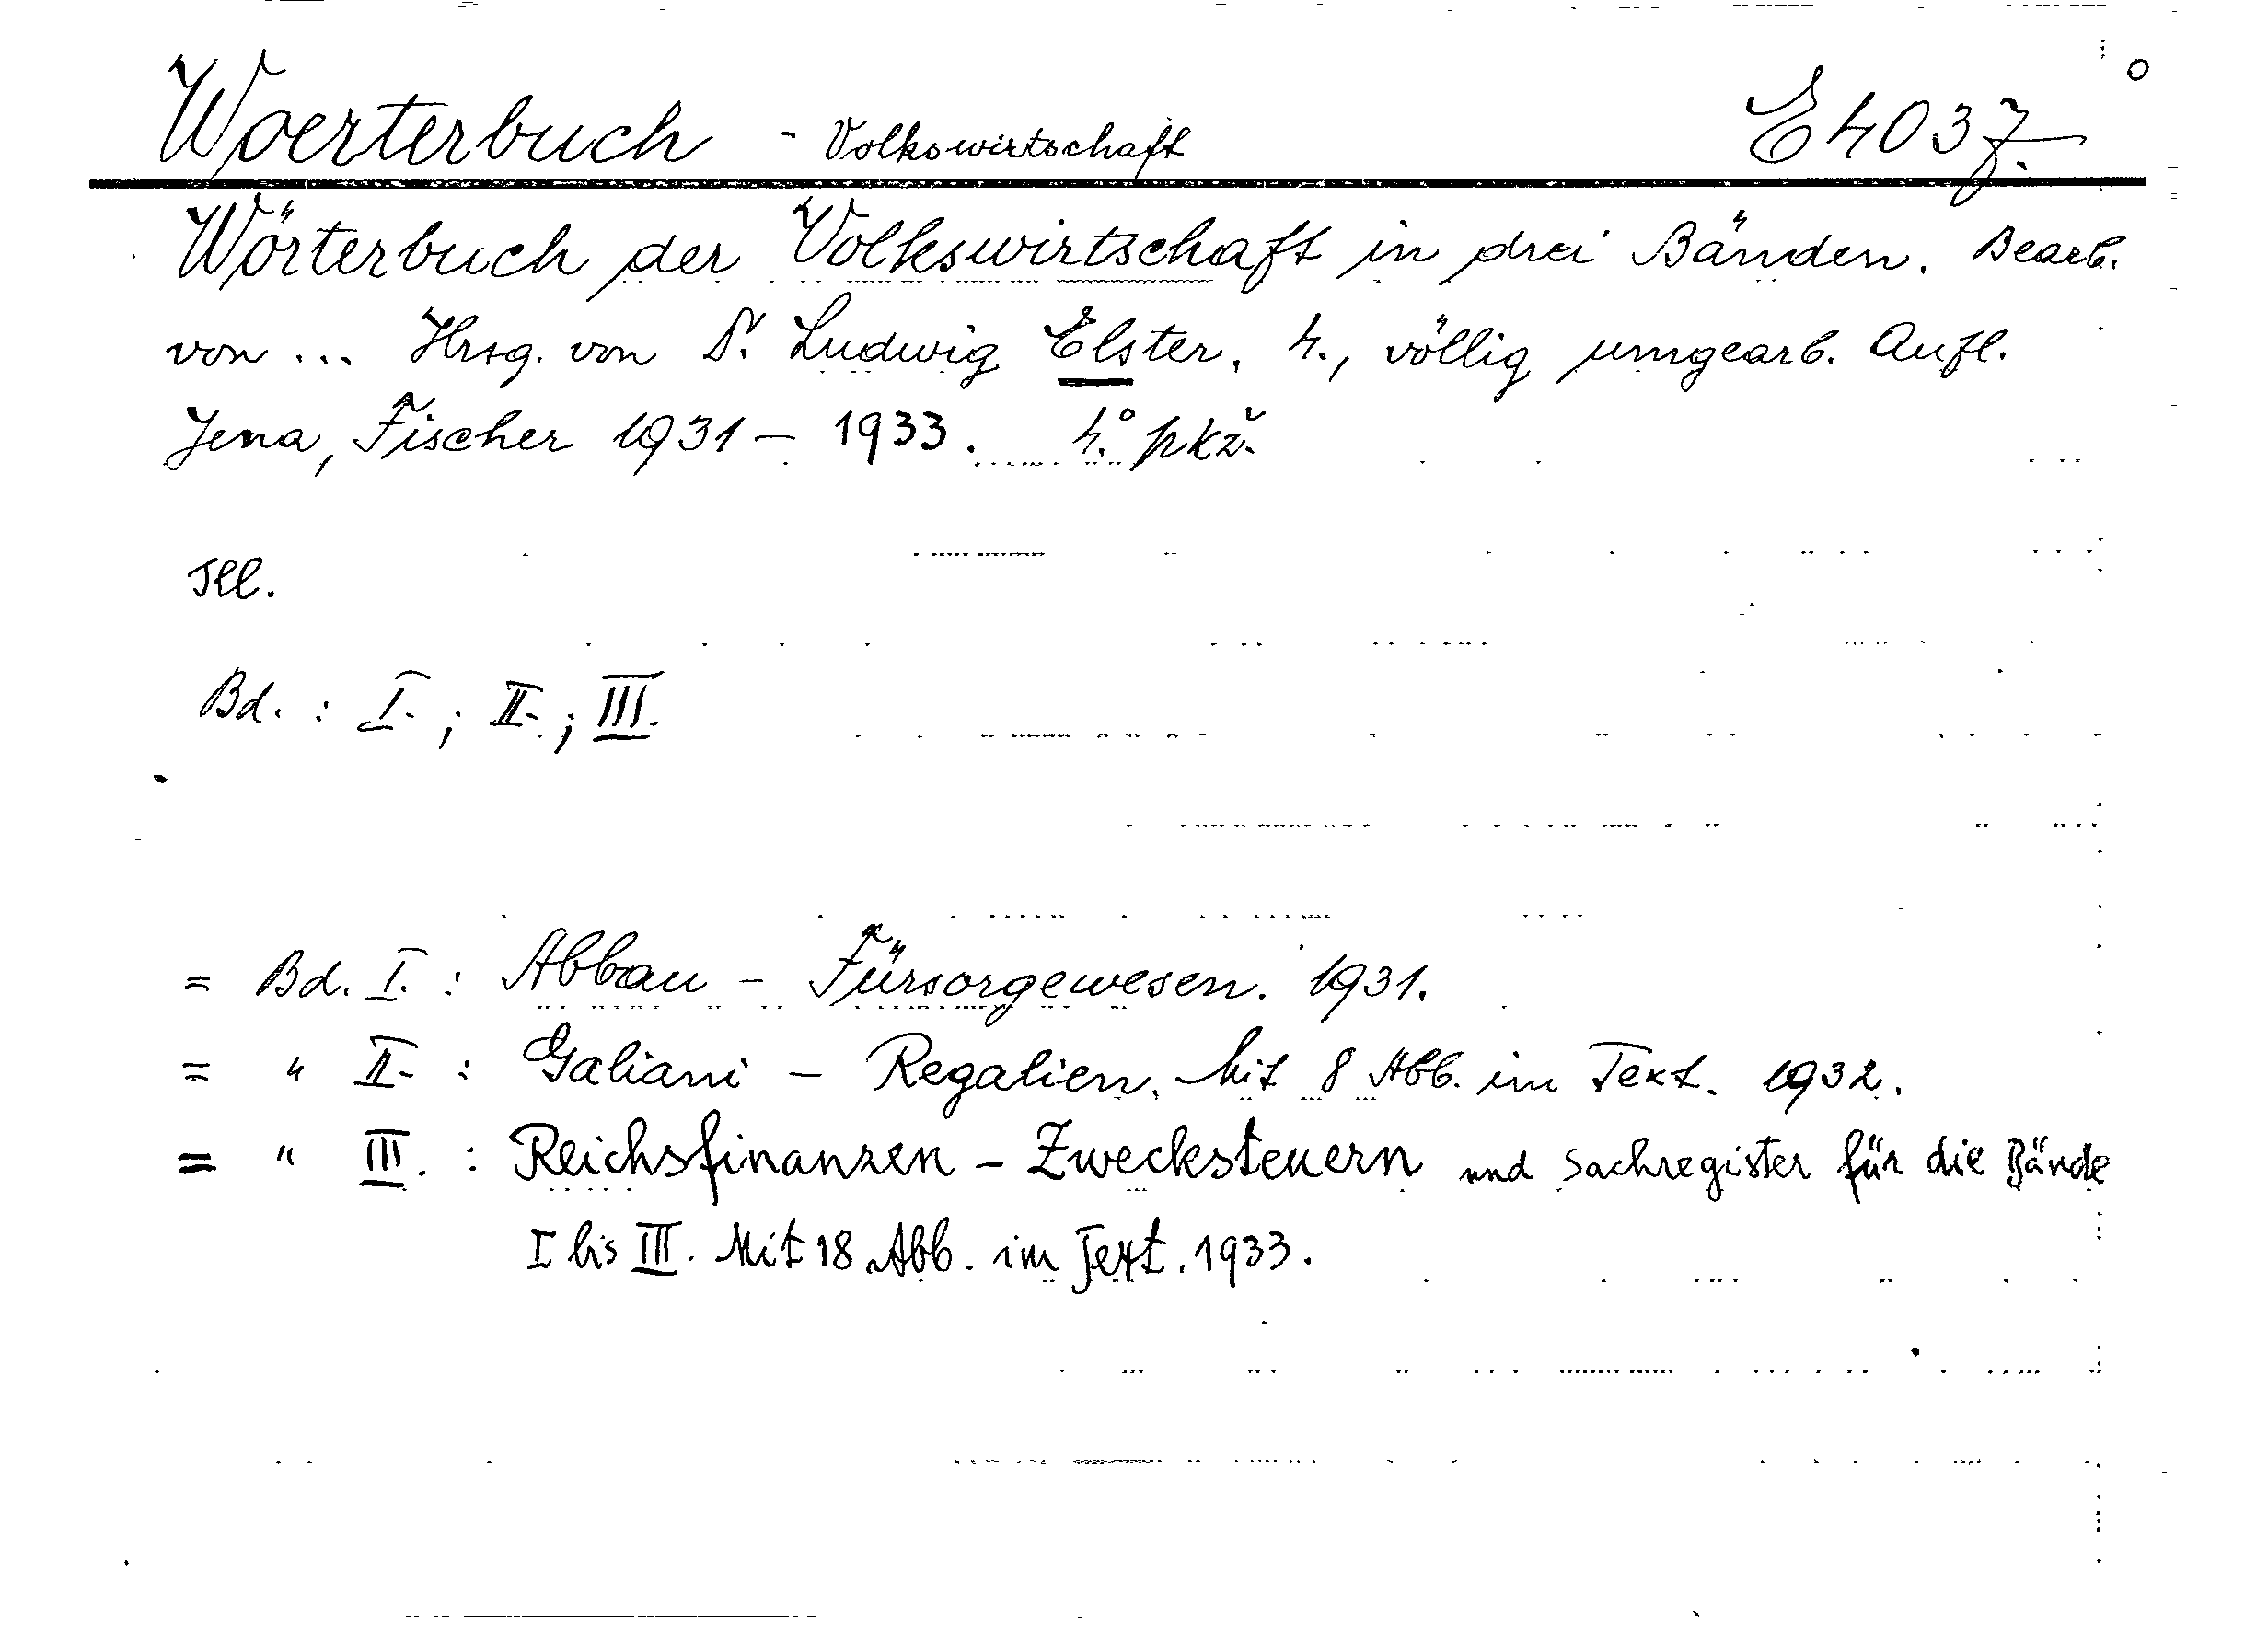 Woerterbuch - Volkswirtschaft E4037.
Wörterbuch der Volkswirtschaft in drei Bänden. Bearb.
von ... Hrsg. von Dr. Ludwig Elster. 4., völlig umgearb. Aufl.
Jena, Fischer 1931 – 1933. 4° pkž.
Ill.
Bd. : I. ; II. ; III.
= Bd. I. : Abbau – Fürsorgewesen. 1931.
= " II. : Galiani – Regalien. Mit 8 Abb. im Text. 1932.
= " III. : Reichsfinanzen – Zwecksteuern und Sachregister für die Bände
I bis III. Mit 18 Abb. im Text. 1933.